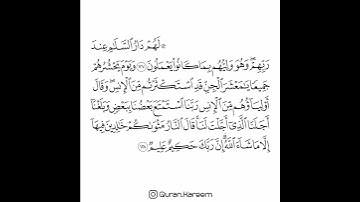 ۞ لَهُمْ دَارُ ٱلسَّلَٰمِ عِندَ
رَبِّهِمْ ۖ وَهُوَ وَلِيُّهُم بِمَا كَانُوا۟ يَعْمَلُونَ ١٢٧ وَيَوْمَ يَحْشُرُهُمْ
جَمِيعًا يَٰمَعْشَرَ ٱلْجِنِّ قَدِ ٱسْتَكْثَرْتُم مِّنَ ٱلْإِنسِ ۖ وَقَالَ
أَوْلِيَآؤُهُم مِّنَ ٱلْإِنسِ رَبَّنَا ٱسْتَمْتَعَ بَعْضُنَا بِبَعْضٍ وَبَلَغْنَآ
أَجَلَنَا ٱلَّذِىٓ أَجَّلْتَ لَنَا ۚ قَالَ ٱلنَّارُ مَثْوَىٰكُمْ خَٰلِدِينَ فِيهَآ
إِلَّا مَا شَآءَ ٱللَّهُ ۗ إِنَّ رَبَّكَ حَكِيمٌ عَلِيمٌ ١٢٨
Quran.Kareem